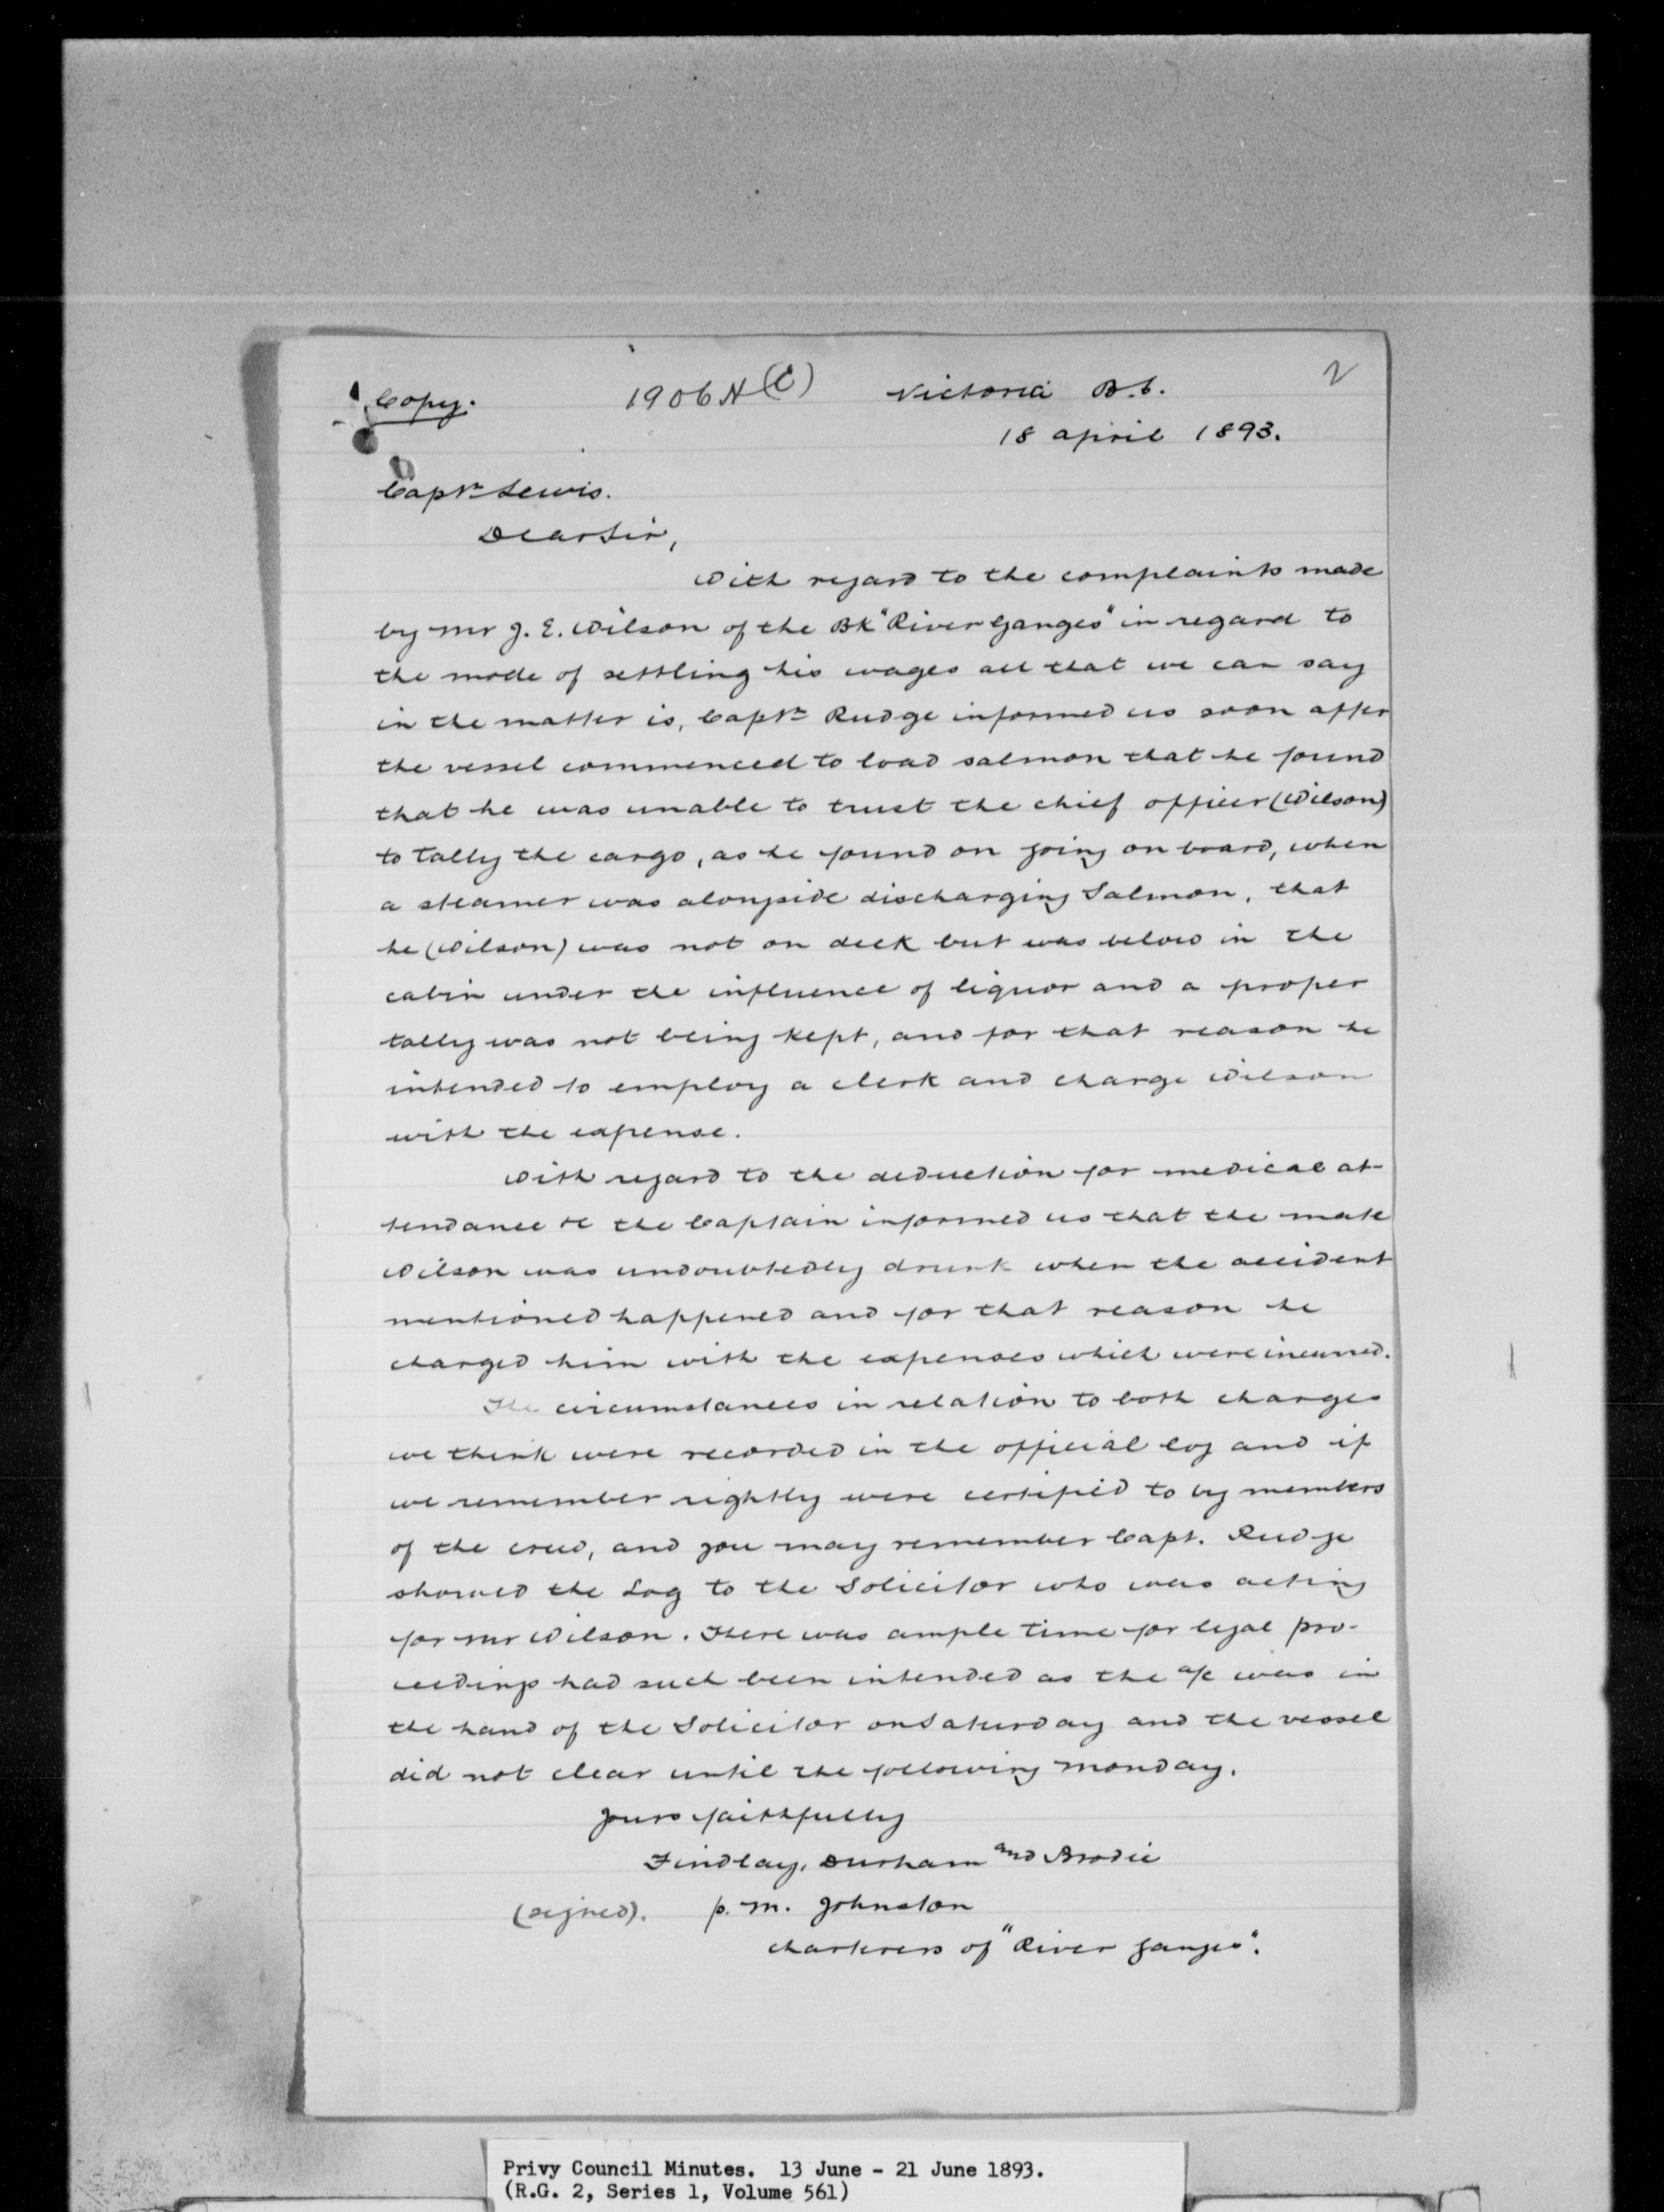 Copy.
1906 H (C)
Victoria B.C.
2
18 April 1893.
Captn Lewis.
Dear Sir,
With regard to the complaints made
by Mr J. E. Wilson of the Bk "River Ganges" in regard to
the mode of settling his wages all that we can say
in the matter is, Captn Rudge informed us soon after
the vessel commenced to load salmon that he found
that he was unable to trust the chief officer (Wilson)
to tally the cargo, as he found on going on board, when
a steamer was alongside discharging Salmon, that
he (Wilson) was not on deck but was below in the
cabin under the influence of liquor and a proper
tally was not being kept, and for that reason he
intended to employ a clerk and charge Wilson
with the expense.
With regard to the deduction for medical at-
tendance &c the Captain informed us that the mate
Wilson was undoubtedly drunk when the accident
mentioned happened and for that reason he
charged him with the expenses which were incurred.
The circumstances in relation to both charges
we think were recorded in the official log and if
we remember rightly were certified to by members
of the crew, and you may remember Capt. Rudge
showed the Log to the Solicitor who was acting
for Mr Wilson. There was ample time for legal pro-
ceedings had such been intended as the a/c was in
the hand of the Solicitor on Saturday and the vessel
did not clear until the following Monday.
Yours faithfully
Findlay, Durham and Brodie
(signed). p. M. Johnston
Charterers of "River Ganges".
Privy Council Minutes. 13 June - 21 June 1893.
(R.G. 2, Series 1, Volume 561)